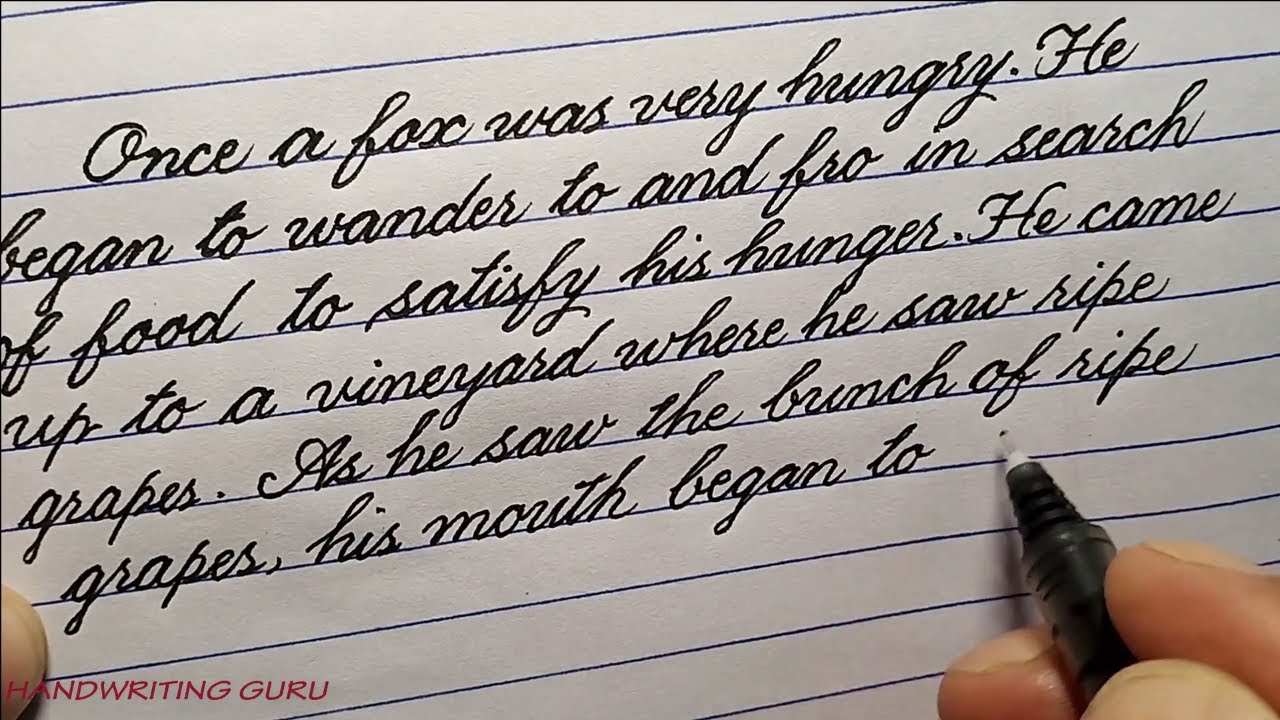 Once a fox was very hungry. He
began to wander to and fro in search
of food to satisfy his hunger. He came
up to a vineyard where he saw ripe
grapes. As he saw the bunch of ripe
grapes, his mouth began to
HANDWRITING GURU